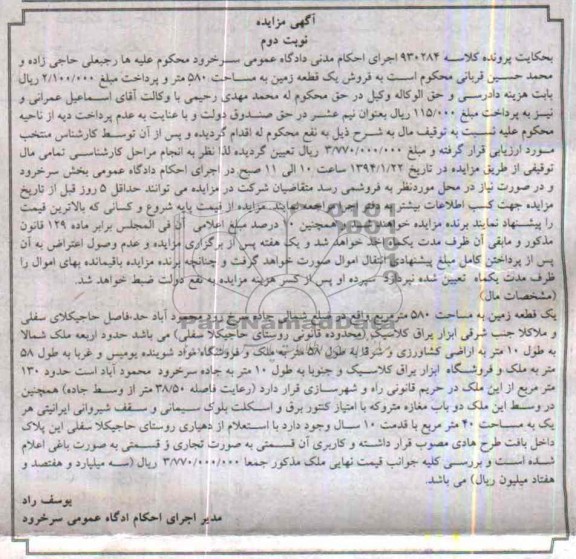 آگهی مزایده
نوبت دوم
بحکایت پرونده کلاسه ۹۳۰۲۸۴ اجرای احکام مدنی دادگاه عمومی سرخرود محکوم علیه ها رجبعلی حاجی زاده و
محمد حسین قربانی محکوم است به فروش یک قطعه زمین به مساحت ۵۸۰ متر و پرداخت مبلغ ۲/۱۰۰/۰۰۰ ریال
بابت هزینه دادرسی و حق الوکاله وکیل در حق محکوم له محمد مهدی رحیمی با وکالت آقای اسماعیل عمرانی و
نیز به پرداخت مبلغ ۱۱۵/۰۰۰ ریال بعنوان نیم عشر در حق صندوق دولت و با عنایت به عدم پرداخت دیه از ناحیه
محکوم علیه نسبت به توقیف مال به شرح ذیل به نفع محکوم له اقدام گردیده و پس از آن توسط کارشناس منتخب
مورد ارزیابی قرار گرفته و مبلغ ۳/۷۷۰/۰۰۰/۰۰۰ ریال تعیین گردیده لذا نظر به انجام مراحل کارشناسی تمامی مال
توقیفی از طریق مزایده در تاریخ ۱۳۹۴/۱/۲۲ ساعت ۱۰ الی ۱۱ صبح در اجرای احکام دادگاه عمومی بخش سرخرود
و در صورت نیاز در محل موردنظر به فروشمی رسد متقاضیان شرکت در مزایده می توانند حداقل ۵ روز قبل از تاریخ
مزایده جهت کسب اطلاعات بیشتر به دفتر اجرا مراجعه نمایند. مزایده از قیمت پایه شروع و کسانی که بالاترین قیمت
را پیشنهاد نمایند برنده مزایده خواهند بود. همچنین ۱۰ درصد مبلغ اعلامی آن فی المجلس برابر ماده ۱۲۹ قانون
مذکور و مابقی آن ظرف مدت یکماه اخذ خواهد شد و یک هفته پس از برگزاری مزایده و عدم وصول اعتراض به آن
پس از پرداختن کامل مبلغ پیشنهادی انتقال اموال صورت خواهد گرفت و چنانچه برنده مزایده باقیمانده بهای اموال را
ظرف مدت یکماه تعیین شده نپردازد سپرده او پس از کسر هزینه مزایده به نفع دولت ضبط خواهد شد.
(مشخصات مال)
یک قطعه زمین به مساحت ۵۸۰ مترمربع واقع در ضلع شمالی جاده سرخ رود محمود آباد حد،فاصل حاجیکلای سفلی
و ملاکلا جنب شرقی ابزار یراق کلاسیک (محدوده قانونی روستای حاجیکلا سفلی) می باشد حدود اربعه ملک شمالا
به طول ۱۰ متر به اراضی کشاورزی و شرقا به طول ۵۸ متر به ملک و فروشگاه مواد شوینده پومیس و غربا به طول ۵۸
متر به ملک و فروشگاه ابزار یراق کلاسیک و جنوبا به طول ۱۰ متر به جاده سرخرود محمود آباد است حدود ۱۳۰
متر مربع از این ملک در حریم قانونی راه و شهرسازی قرار دارد (رعایت فاصله ۳۸/۵۰ متر از وسط جاده) همچنین
در وسط این ملک دو باب مغازه متروکه با امتیاز کنتور برق و اسکلت بلوک سیمانی و سقف شیروانی ایرانیتی هر
یک به مساحت ۴۰ متر مربع با قدمت ۱۰ سال وجود دارد با استعلام از دهیاری روستای حاجیکلا سفلی این پلاک
داخل بافت طرح هادی مصوب قرار داشته و کاربری آن قسمتی به صورت تجاری و قسمتی به صورت باغی اعلام
شده است و بررسی کلیه جوانب قیمت نهایی ملک مذکور جمعا ۳/۷۷۰/۰۰۰/۰۰۰ ریال (سه میلیارد و هفتصد و
هفتاد میلیون ریال) می باشد.
یوسف راد
مدیر اجرای احکام ادگاه عمومی سرخرود
ParsNamadData